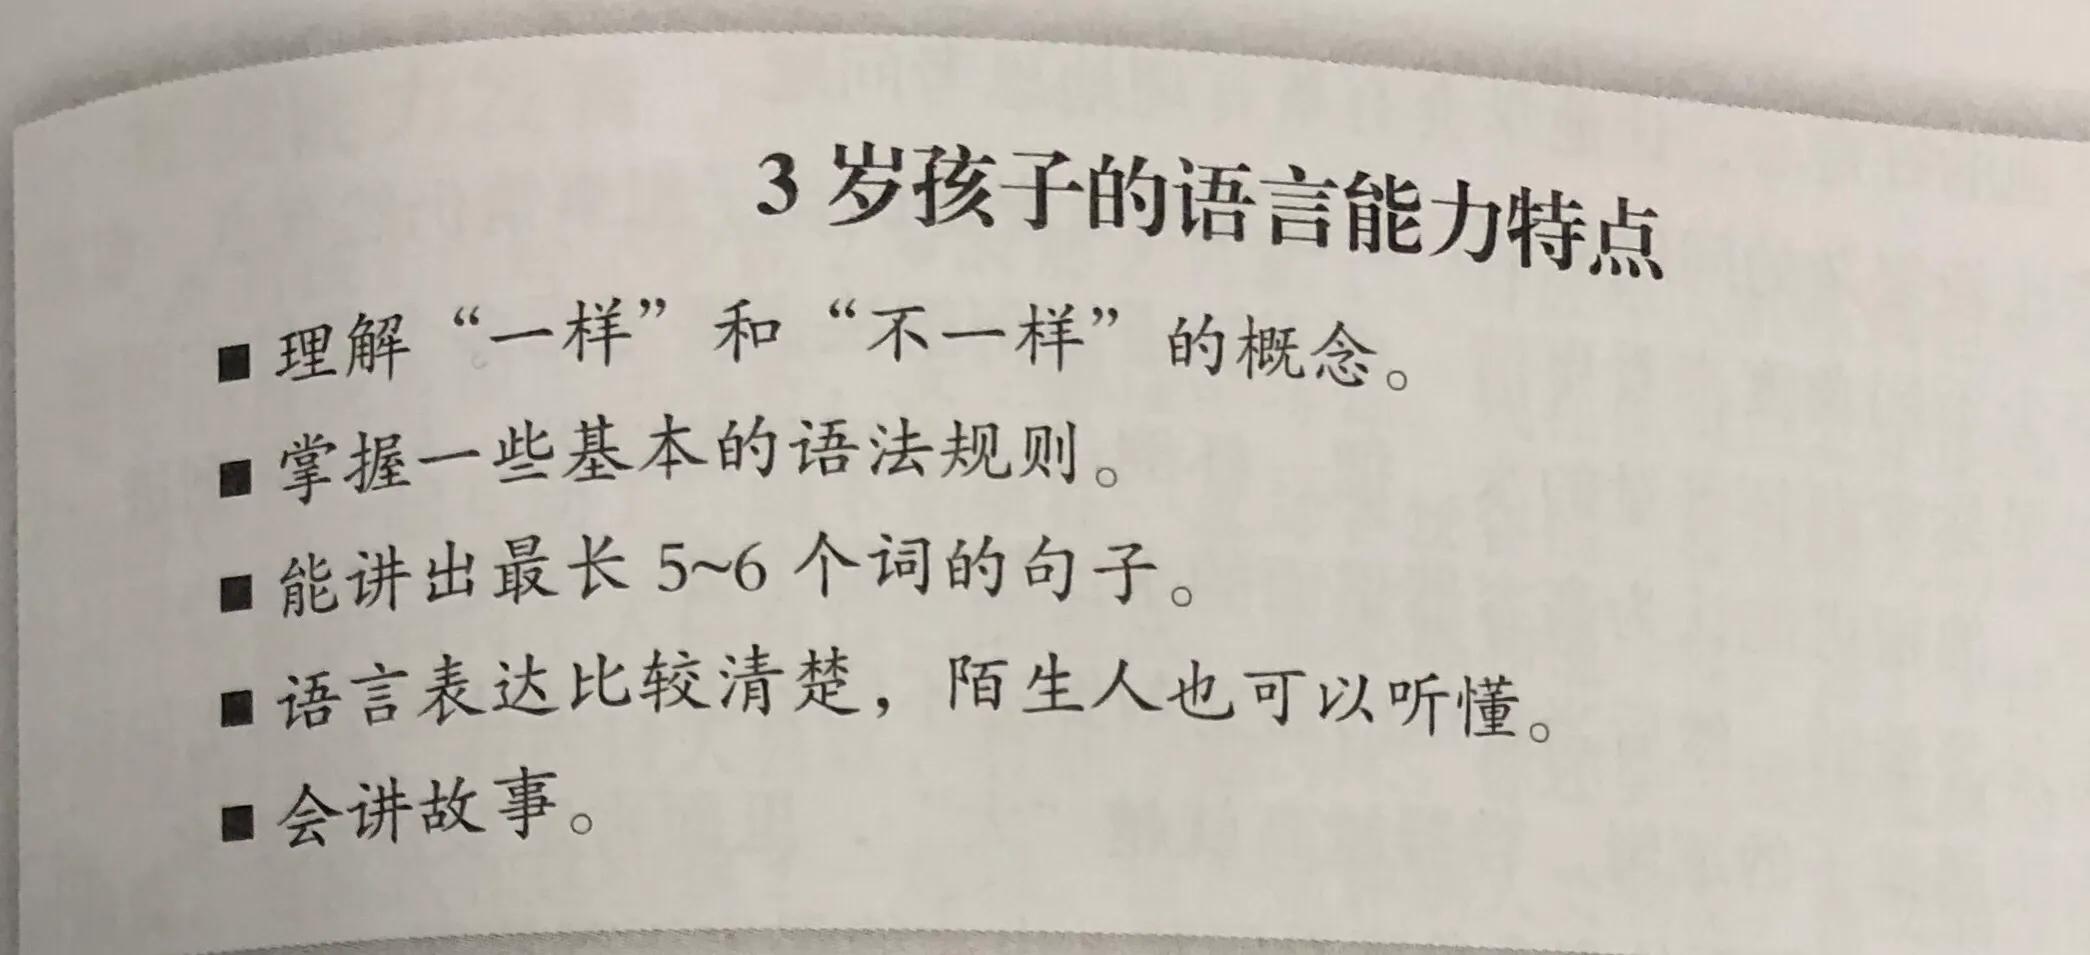 3 岁孩子的语言能力特点
■ 理解“一样”和“不一样”的概念。
■ 掌握一些基本的语法规则。
■ 能讲出最长 5~6 个词的句子。
■ 语言表达比较清楚，陌生人也可以听懂。
■ 会讲故事。